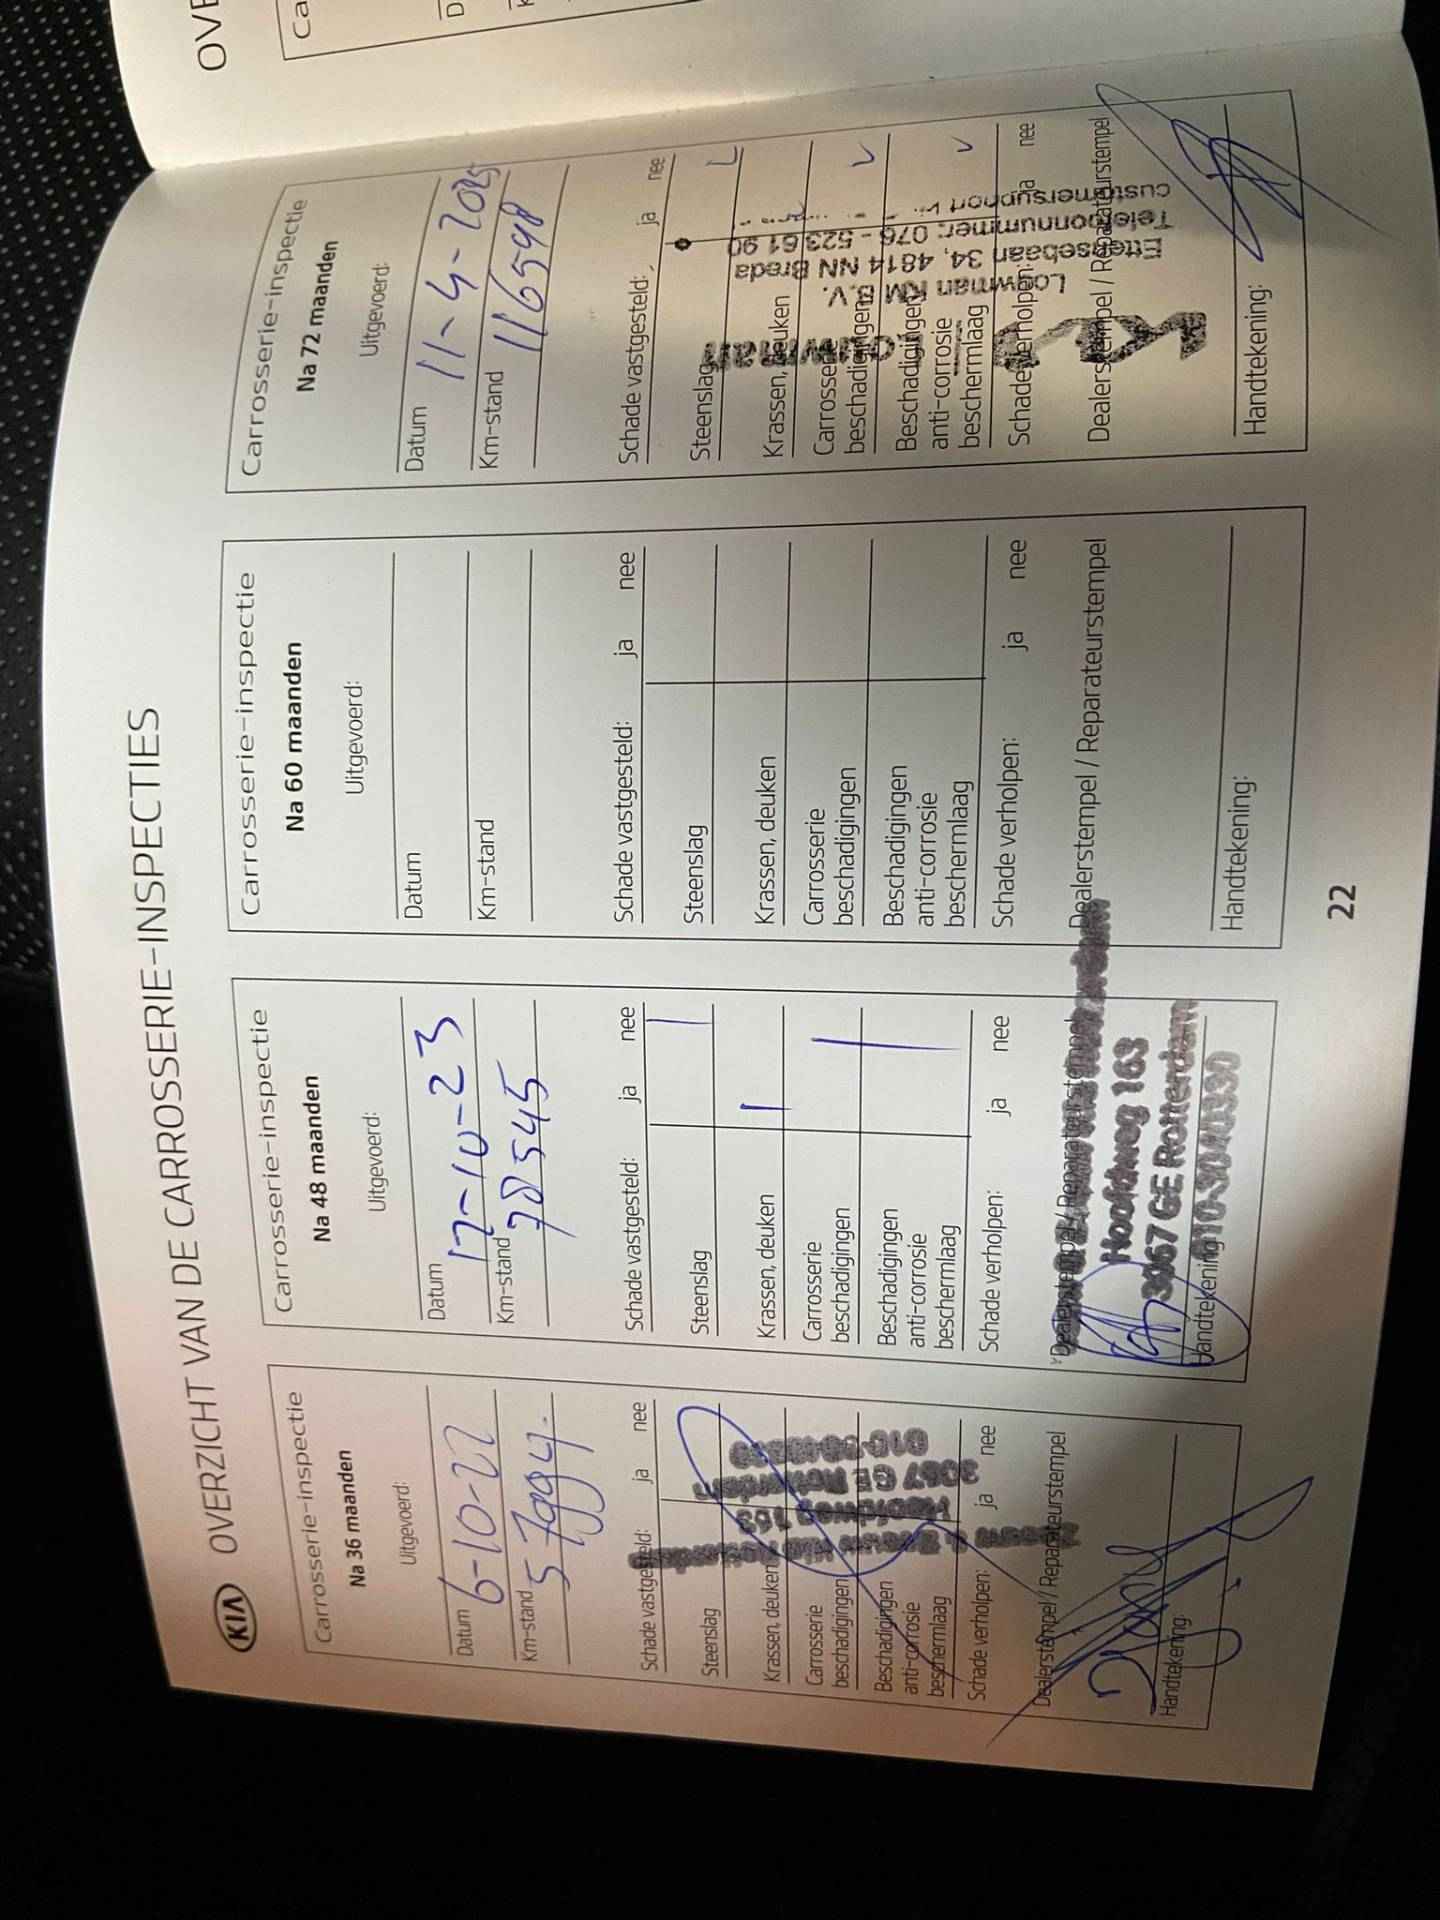 KIA OVERZICHT VAN DE CARROSSERIE-INSPECTIES
Carrosserie-inspectie
Na 36 maanden
Uitgevoerd:
Datum 6-10-22
Km-stand
Schade vastgesteld: ja nee
Steenslag
Krassen, deuken
Carrosserie
beschadigingen
Beschadigingen
anti-corrosie
beschermlaag
Schade verholpen: ja nee
Dealerstempel / Reparateurstempel
Hoofdweg 163
3067 GE Rotterdam
Handtekening:
Carrosserie-inspectie
Na 48 maanden
Uitgevoerd:
Datum 17-10-23
Km-stand 78545
Schade vastgesteld: ja nee
Steenslag
Krassen, deuken
Carrosserie
beschadigingen
Beschadigingen
anti-corrosie
beschermlaag
Schade verholpen: ja nee
Dealerstempel / Reparateurstempel
Hoofdweg 163
3067 GE Rotterdam
Handtekening:
Carrosserie-inspectie
Na 60 maanden
Uitgevoerd:
Datum
Km-stand
Schade vastgesteld: ja nee
Steenslag
Krassen, deuken
Carrosserie
beschadigingen
Beschadigingen
anti-corrosie
beschermlaag
Schade verholpen: ja nee
Dealerstempel / Reparateurstempel
Handtekening:
Carrosserie-inspectie
Na 72 maanden
Uitgevoerd:
Datum 11-4-2025
Km-stand
116598
Schade vastgesteld: ja nee
Steenslag
Krassen, deuken
Carrosserie
beschadigingen
Beschadigingen
anti-corrosie
beschermlaag
Schade verholpen: ja nee
Dealerstempel / Reparateurstempel
Louwman
Louwman KM B.V.
Ettensebaan 34, 4814 NN Breda
Telefoonnummer: 076 - 523 61 90
Handtekening:
22
OVE
Ca
D